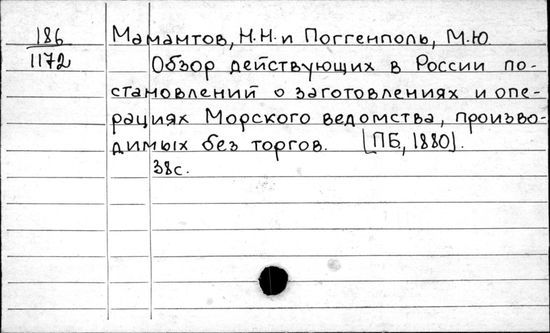 186 Мамамтов, Н.Н. и Поггенполь, М.Ю.
1172 Обзор действующих в России по-
становлений о заготовлениях и опе-
рациях Морского ведомства, произво-
димых без торгов. [ПБ, 1880].
38с.